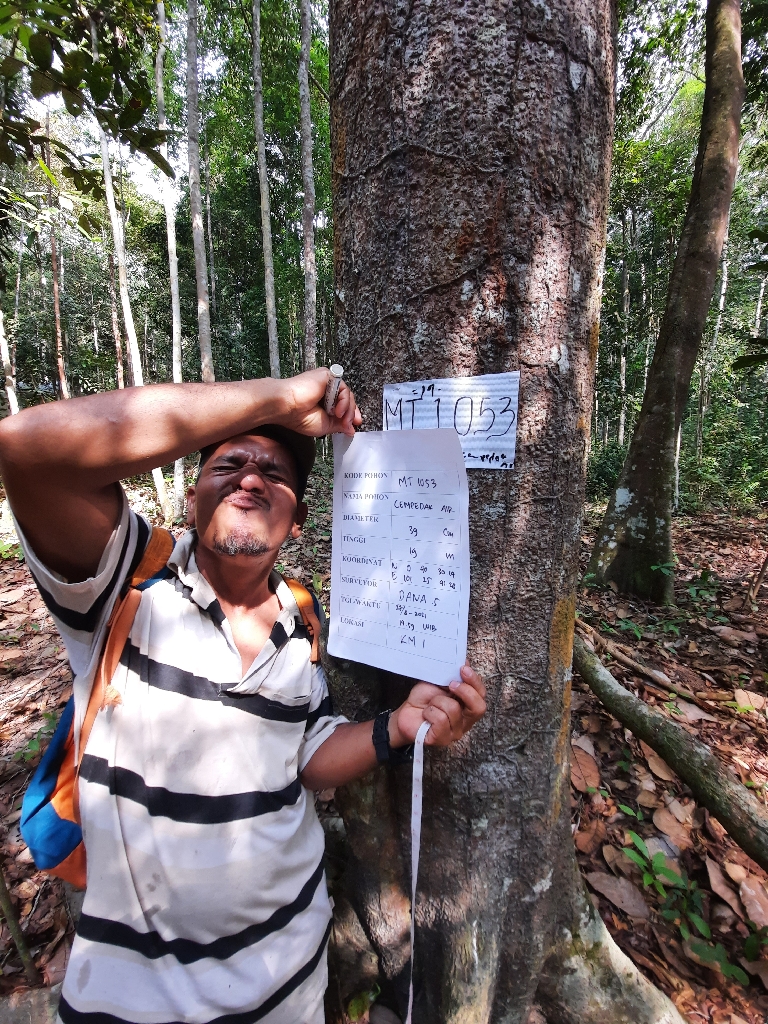 MT 1053
KODE POHON MT 1053
NAMA POHON CEMPEDAK AIR
DIAMETER 39 Cm
TINGGI 19 m
KOORDINAT N 0 40
E 101 25
SURVEYOR DANA.S
TGL/WAKTU
WIB
LOKASI KM 1